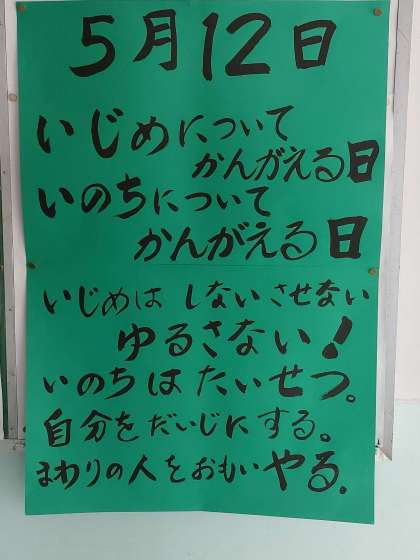 5月12日
いじめについて
かんがえる日
いのちについて
かんがえる日
いじめは しない させない
ゆるさない!
いのちは たいせつ。
自分を だいじに する。
まわりの人を おもいやる.